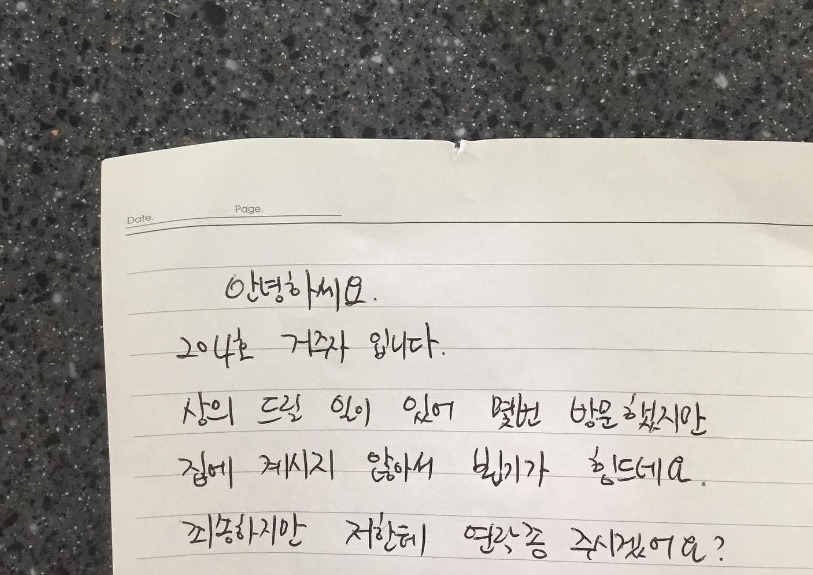 Date.
Page.
안녕하세요.
204호 거주자 입니다.
상의 드릴 일이 있어 몇번 방문했지만
집에 계시지 않아서 뵙기가 힘드네요.
죄송하지만 저한테 연락좀 주시겠어요?